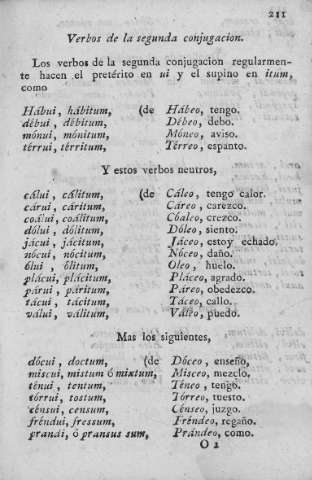 211
Verbos de la segunda conjugacion.
Los verbos de la segunda conjugacion regularmen-
te hacen el pretérito en ui y el supino en itum,
como
Hábui, hábitum, (de Hábeo, tengo.
débui, débitum, Débeo, debo.
mónui, mónitum, Móneo, aviso.
térrui, térritum, Térreo, espanto.
Y estos verbos neutros,
cálui, cálitum, (de Cáleo, tengo calor.
cárui, cáritum, Cáreo, carezco.
coálui, coálitum, Cóaleo, crezco.
dólui, dólitum, Dóleo, siento.
jácui, jácitum, Jáceo, estoy echado.
nócui, nócitum, Nóceo, daño.
ólui, ólitum, Oleo, huelo.
plácui, plácitum, Pláceo, agrado.
párui, páritum, Páreo, obedezco.
tácui, tácitum, Táceo, callo.
válui, válitum, Váleo, puedo.
Mas los siguientes,
dócui, doctum, (de Dóceo, enseño,
miscui, mistum ó mixtum, Misceo, mezclo.
ténui, tentum, Téneo, tengo.
tórrui, tostum, Tórreo, tuesto.
cénsui, censum, Cénseo, juzgo.
fréndui, fressum, Fréndeo, regaño.
prandi, ó pransus sum, Prándeo, como.
O 2